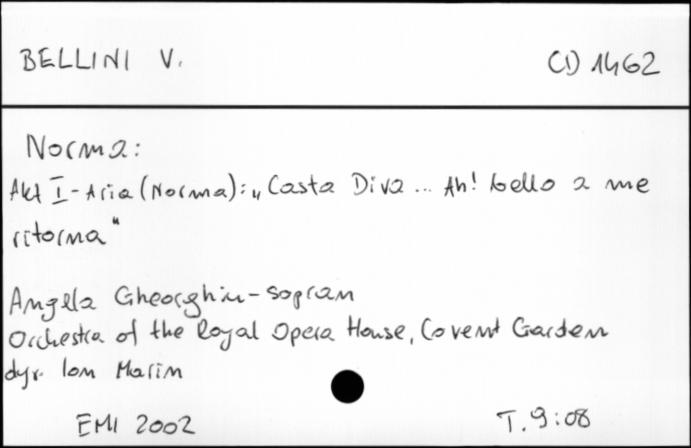 BELLINI V. CD 1462
Norma:
Akt I - Aria (Norma): „Casta Diva... Ah! bello a me
ritorna"
Angela Gheorghiu - sopran
Orchestra of the Royal Opera House, Covent Garden
dyr. Ion Marin
EMI 2002 T. 9:08